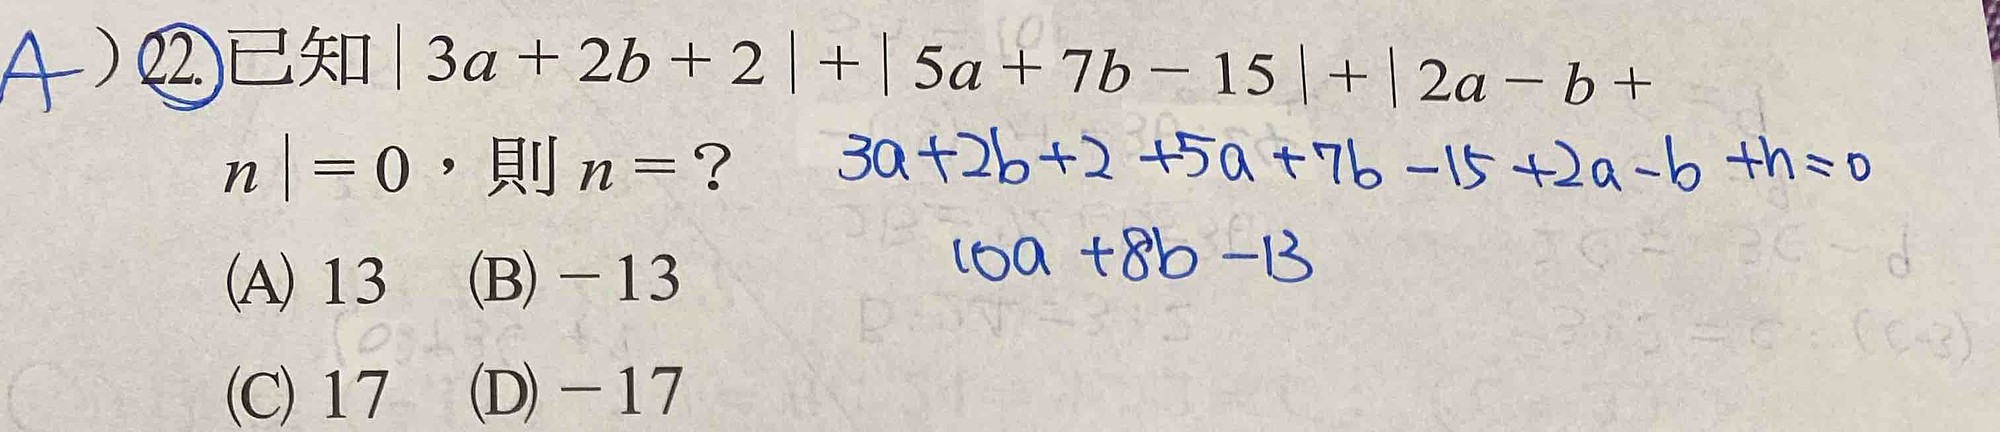 A ) 22. 已知 | 3a + 2b + 2 | + | 5a + 7b − 15 | + | 2a − b +
n | = 0，則 n = ?
3a+2b+2 +5a+7b-15+2a-b +n=0
10a +8b -13
(A) 13 (B) −13
(C) 17 (D) −17